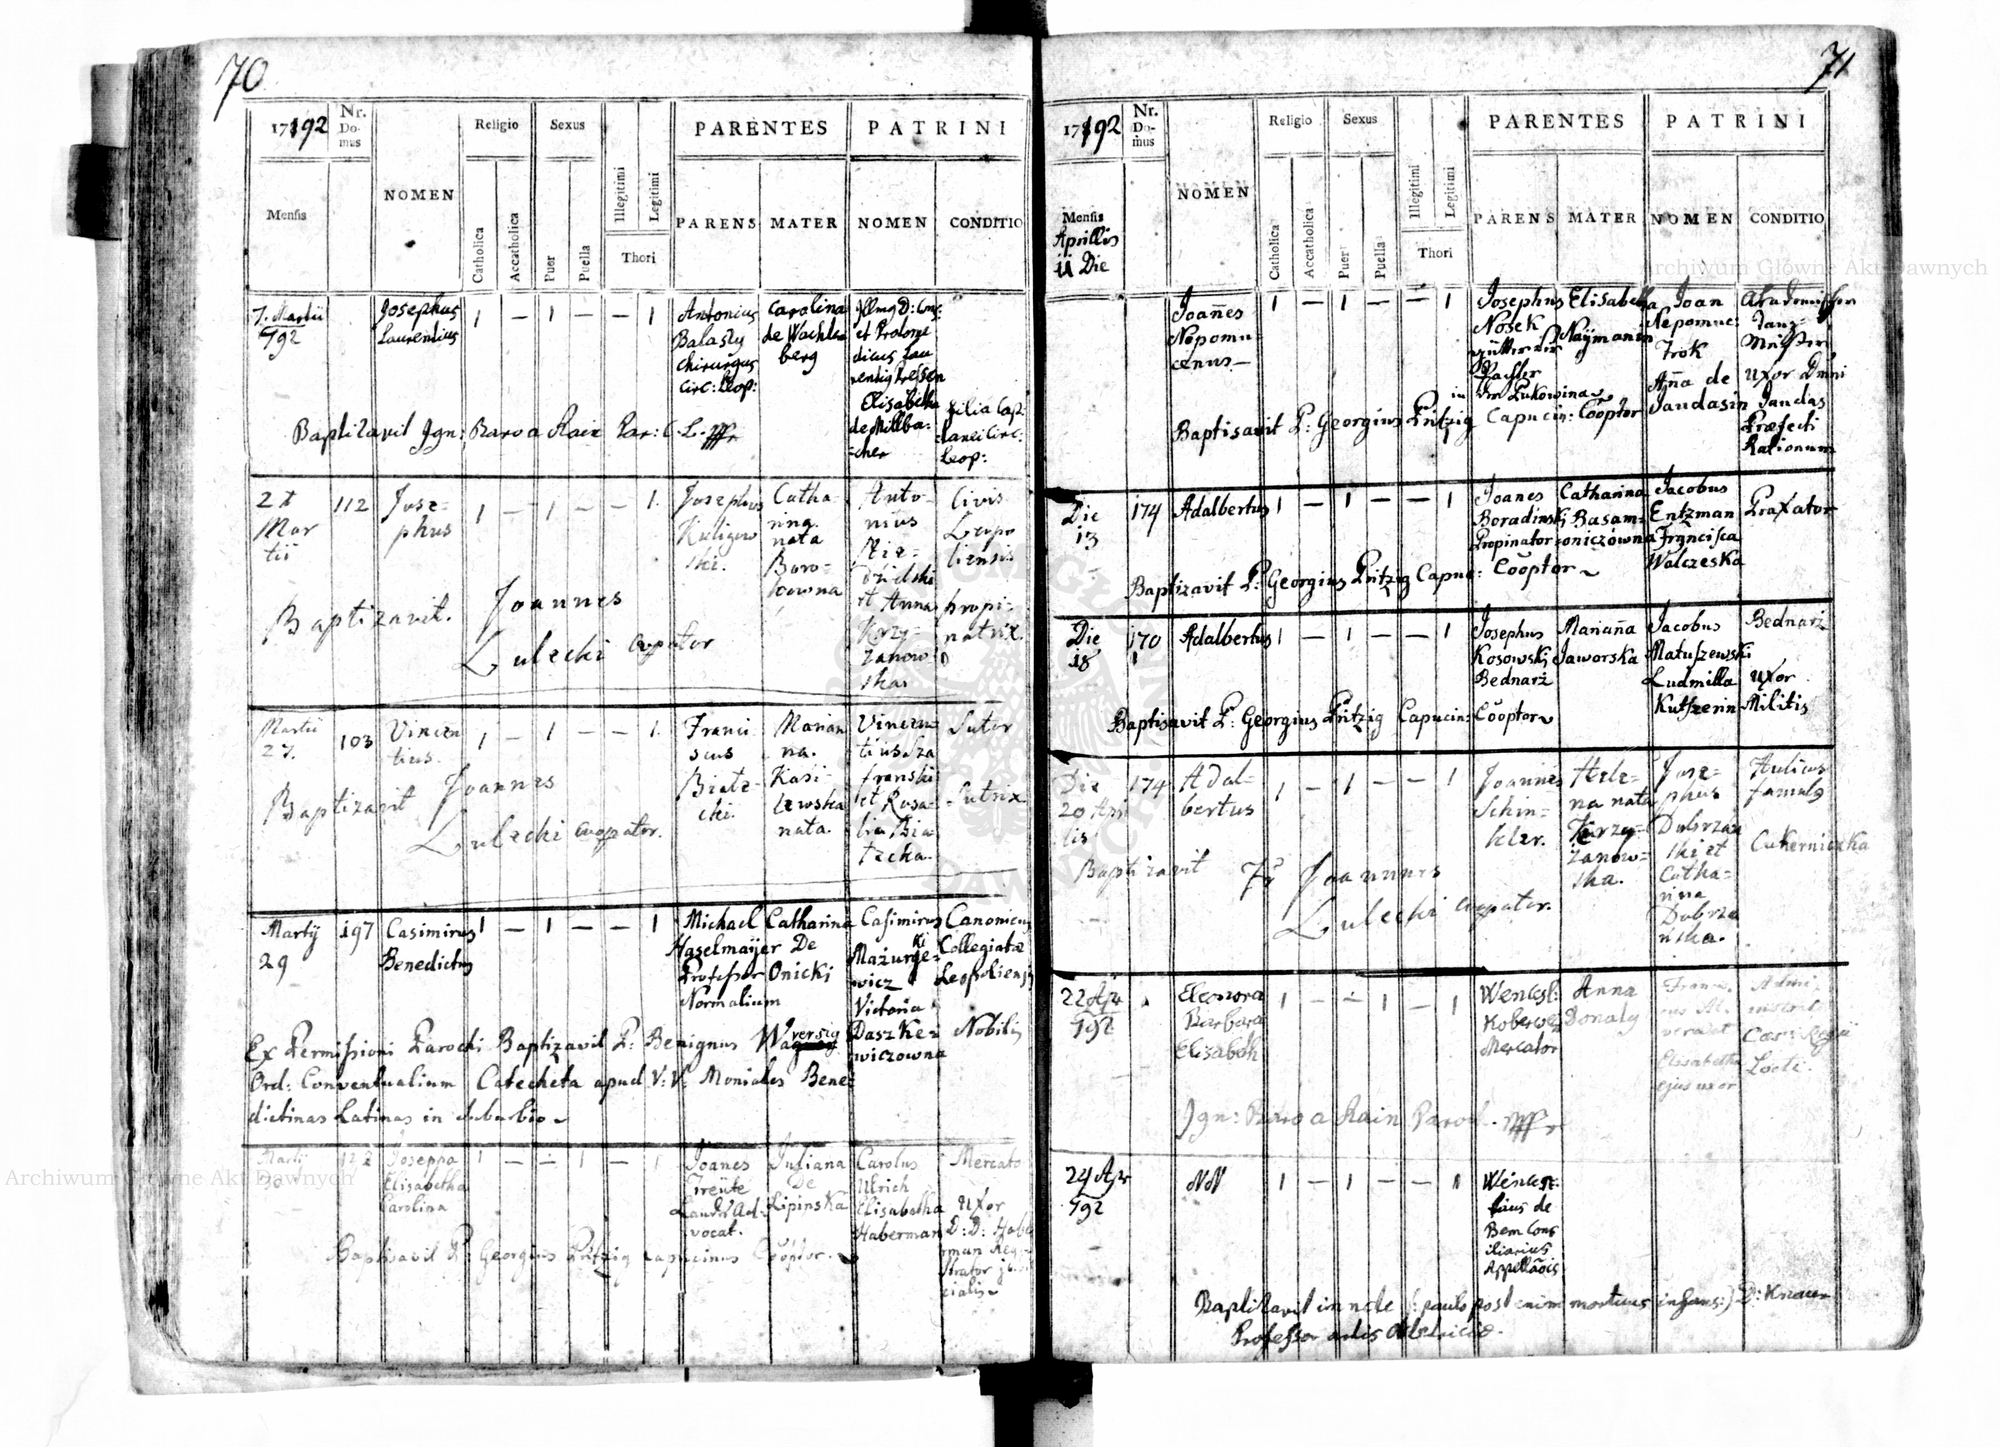 70
1792
Nr. Do- mus
NOMEN
Religio
Sexus
PARENTES
PATRINI
Mensis
Catholica
Accatholica
Puer
Puella
Illegitimi
Legitimi
Thori
PARENS
MATER
NOMEN
CONDITIO
7. Martii
792
Josephus
Laurentius
1 — 1 — — 1
Antonius
Balasty
Chirurgus
Circ: Leop:
Carolina
de Wachten
berg
Illmg D: Cons:
et Protome
dicus Lau
rentig Kressen
Elisabetha
de Millba-
cher
filia Cap:
Circ:
Leop:
Baptizavit Ign: Baro a Rain Par: C. L.
27
Mar
tii
112
Jose-
phus
1 — 1 — — 1.
Josephus
Kuligow
ski.
Catha-
rina
nata
Boro-
kowna
Anto-
nius
Nie-
dzielski
et Anna
Krzy-
zanow
ska.
Civis
Leopo
liensis
propi-
natrix.
Baptizavit. Joannes
Lulecki Cooperator
Martii
27.
103
Vincen
tius.
1 — 1 — — 1.
Franci
scus
Biale-
cki.
Marian
na.
Kasi-
lewska
nata.
Vincen-
tius Sza
franski
et Rosa-
lia Bia-
lecka.
Sutor
Sutrix
Baptizavit Joannes
Lulecki Cooperator.
Martij
29
197
Casimirus
Benedictus
1 — 1 — — 1
Michael
Haselmaÿer
Professor
Normalium
Catharina
De
Onicki
Casimirus
Mazurge-
wicz
Victoria
Daszke-
wiczowna
Canonicus
Collegiatæ
Leopoliensis
Nobilis
Ex Permissioni Parochi Baptizavit P: Benignus
Ord: Conventualium Catecheta apud V: V: Moniales Bene-
dictinas Latinas in suburbio
Martij
30
122
Josepha
Elisabetha
Carolina
1 — — 1 — 1
Joanes
Treüte
Laur: Ad-
vocat.
Juliana
De
Lipinska
Carolus
Ulrich
Elisabetha
Haberman
Mercato
Uxor
D: D: Habe
rman Reg-
strator
cialis
Baptisavit P: Georgius Pritzig Capucinus Cooptor.
71
1792
Nr. Do- mus
NOMEN
Religio
Sexus
PARENTES
PATRINI
Mensis
Aprillis
11 Die
Catholica
Accatholica
Puer
Puella
Illegitimi
Legitimi
Thori
PARENS
MATER
NOMEN
CONDITIO
Joañes
Nepomu
cenus
1 — 1 — — 1
Josephus
Nosek
Pachter
in der Bukowina
Elisabetha
Naÿmanin
Joan
Nepomuc:
Trok
Aña de
Jandasin
Akademischer
Tanz-
Meister
Uxor Dmni
Jandas
Præfecti
Rationum
Baptisavit P: Georgius Pritzig Capucin: Cooptor
Die
13
174
Adalbertus
1 — 1 — — 1
Joanes
Boradinski
Propinator
Catharina
Basam-
oniczówna
Jacobus
Entzman
Francisca
Walczeska
Traxator
Baptizavit P: Georgius Pritzig Capuc: Cooptor
Die
18
170
Adalbertus
1 — 1 — — 1
Josephus
Kosowski
Bednarz
Mariaña
Jaworska
Jacobus
Matuszewski
Ludmilla
Kutszerin
Bednarz
Uxor
Militis
Baptisavit P: Georgius Pritzig Capucin: Cooptor
Die
20 Apri
lis
174
Adal-
bertus
1 — 1 — — 1
Joannes
Schin-
kler.
Hele-
na nata
Krzy-
zanow-
ska.
Jose-
phus
Dobrzan
ski et
Catha-
rina
Dobrza
nska.
Aulicus
famulg
Cukerniczka
Baptizavit Joannes
Lulecki Cooperator.
22 Apr
792
Eleonora
Barbara
Elisabeth
1 — — 1 — 1
Wencesl:
Koberwe
Mercator
Anna
Donaly
Elisabetha
ejus uxor
Admi-
Cæs: Regii
Lotti.
Ign: Baro a Rain Paroch.
24 Apr
792
NN
1 — 1 — — 1
Wences-
laus de
Bem Cons
iliarius
Appellãois
Baptizavit in nete (: paulo post enim mortuus infans:) D: Knauer
Professor artis Obstriciæ.
Archiwum Główne Akt Dawnych
Archiwum Główne Akt Dawnych